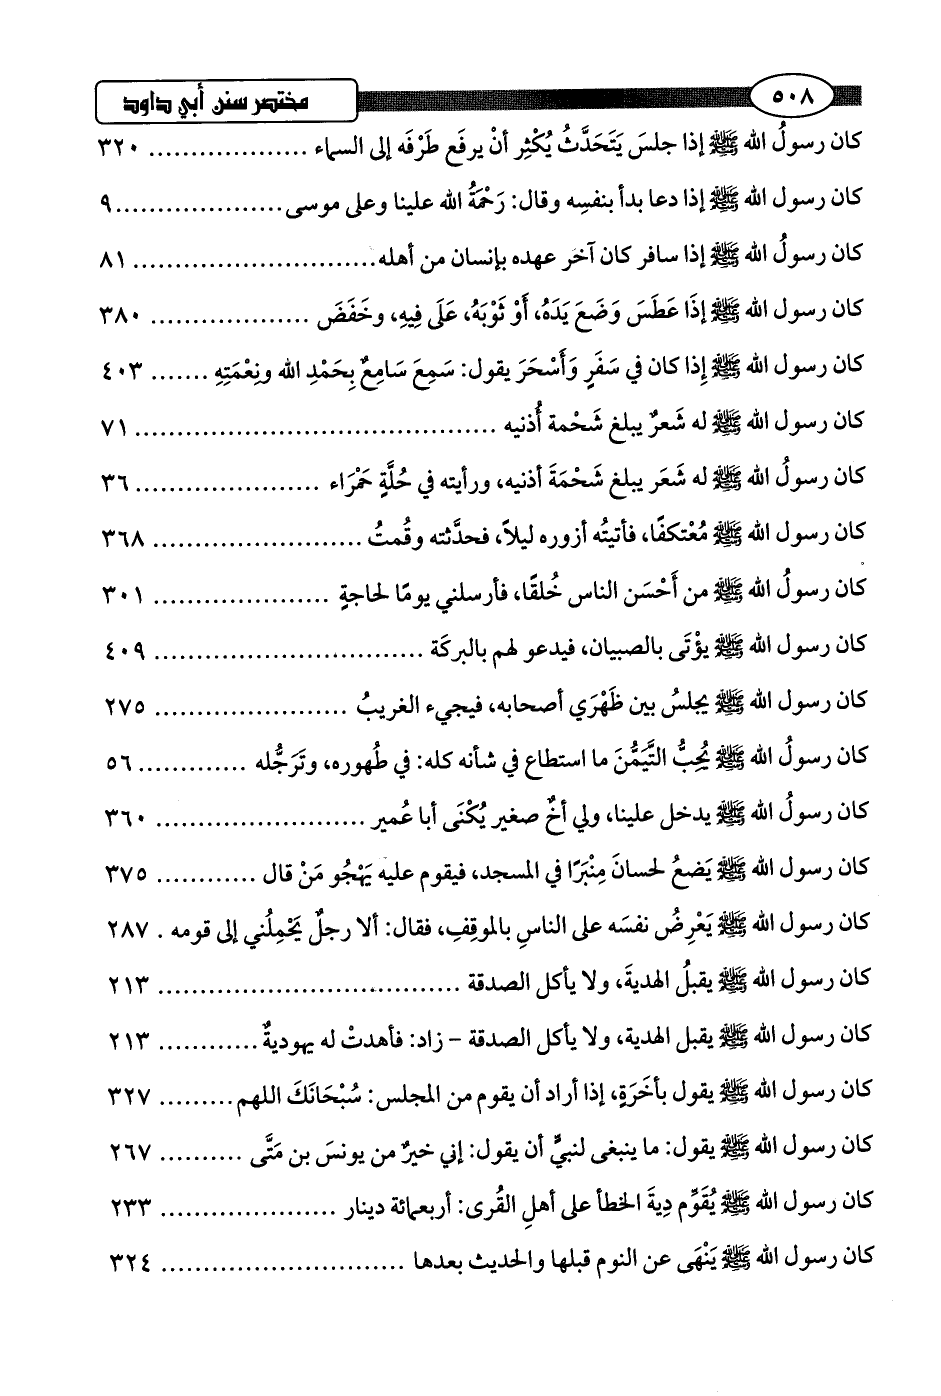 ٥٠٨ مختصر سنن أبي داود
كان رسولُ الله ﷺ إذا جلسَ يَتَحَدَّثُ يُكْثِر أنْ يرفَع طَرْفَه إلى السماء ................... ٣٢٠
كان رسول الله ﷺ إذا دعا بدأ بنفسِه وقال: رَحْمَةُ الله علينا وعلى موسى.................... ٩
كان رسولُ الله ﷺ إذا سافر كان آخر عهده بإنسان من أهله............................. ٨١
كان رسول الله ﷺ إذَا عَطَسَ وَضَعَ يَدَهُ، أَوْ ثَوْبَهُ، عَلَى فِيهِ، وخَفَضَ ................... ٣٨٠
كان رسول الله ﷺ إِذا كان في سَفَرٍ وَأَسْحَرَ يقول: سَمِعَ سَامِعٌ بِحَمْدِ الله ونِعْمَتِهِ ....... ٤٠٣
كان رسول الله ﷺ له شَعرٌ يبلغ شَحْمة أُذنيه ........................................... ٧١
كان رسولُ الله ﷺ له شَعَر يبلغ شَحْمَةَ أذنيه، ورأيته في حُلَّةٍ حَمْرَاء ...................... ٣٦
كان رسول الله ﷺ مُعْتكفًا، فأتيتُه أزوره ليلاً، فحدَّثته وقُمتُ ......................... ٣٦٨
كان رسولُ الله ﷺ من أَحْسَن الناس خُلقًا، فأرسلني يومًا لحاجةٍ ..................... ٣٠١
كان رسول الله ﷺ يؤْتَى بالصبيان، فيدعو لهم بالبركَة ................................ ٤٠٩
كان رسول الله ﷺ يجلسُ بين ظَهْرَي أصحابه، فيجيء الغريبُ ....................... ٢٧٥
كان رسولُ الله ﷺ يُحِبُّ التَّيَمُّنَ ما استطاع في شأنه كله: في طُهوره، وتَرَجُّله ............. ٥٦
كان رسولُ الله ﷺ يدخل علينا، ولي أخٌ صغير يُكْنَى أبا عُمير ......................... ٣٦٠
كان رسول الله ﷺ يَضعُ لحسانَ مِنْبَرًا في المسجد، فيقوم عليه يَهْجُو مَنْ قال ............ ٣٧٥
كان رسول الله ﷺ يَعْرِضُ نفسَه على الناسِ بالموقِفِ، فقال: ألا رجلٌ يَحْمِلُني إلى قومه . ٢٨٧
كان رسول الله ﷺ يقبلُ الهديةَ، ولا يأكل الصدقة .................................... ٢١٣
كان رسول الله ﷺ يقبل الهدية، ولا يأكل الصدقة – زاد: فأهدتْ له يهوديةٌ............ ٢١٣
كان رسول الله ﷺ يقول بأخَرَةٍ، إذا أراد أن يقوم من المجلس: سُبْحَانَكَ اللهم......... ٣٢٧
كان رسول الله ﷺ يقول: ما ينبغى لنبيٍّ أن يقول: إني خيرٌ من يونسَ بن مَتَّى .......... ٢٦٧
كان رسول الله ﷺ يُقَوِّم دِيةَ الخطأ على أهلِ القُرى: أربعمائة دينار ..................... ٢٣٣
كان رسول الله ﷺ يَنْهَى عن النوم قبلها والحديث بعدها ............................. ٣٢٤